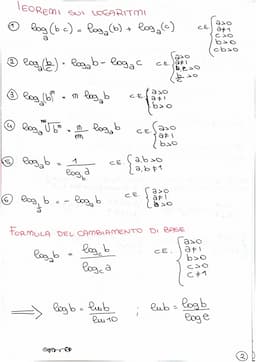 TEOREMI SUI LOGARITMI
① log_a(b·c) = log_a(b) + log_a(c) C.E. { a>0 a≠1 c>0 b>0 c·b>0
② log_a(b/c) = log_a b - log_a c C.E. { a>0 a≠1
③ log_a(b)^m = m log_a b C.E. { a>0 a≠1 b>0
④ C.E. { a>0 a≠1 b>0
⑤ log_a b = 1/log_b a C.E. { a,b>0 a,b≠1
⑥ log_{1/a} b = - log_a b C.E. { a>0 a≠1 b>0
FORMULA DEL CAMBIAMENTO DI BASE
log_a b = log_c b / log_c a C.E. { a>0 a≠1 b>0 c>0 c≠1
⟹ log b = ln b / ln 10 ; ln b = log b / log e
②